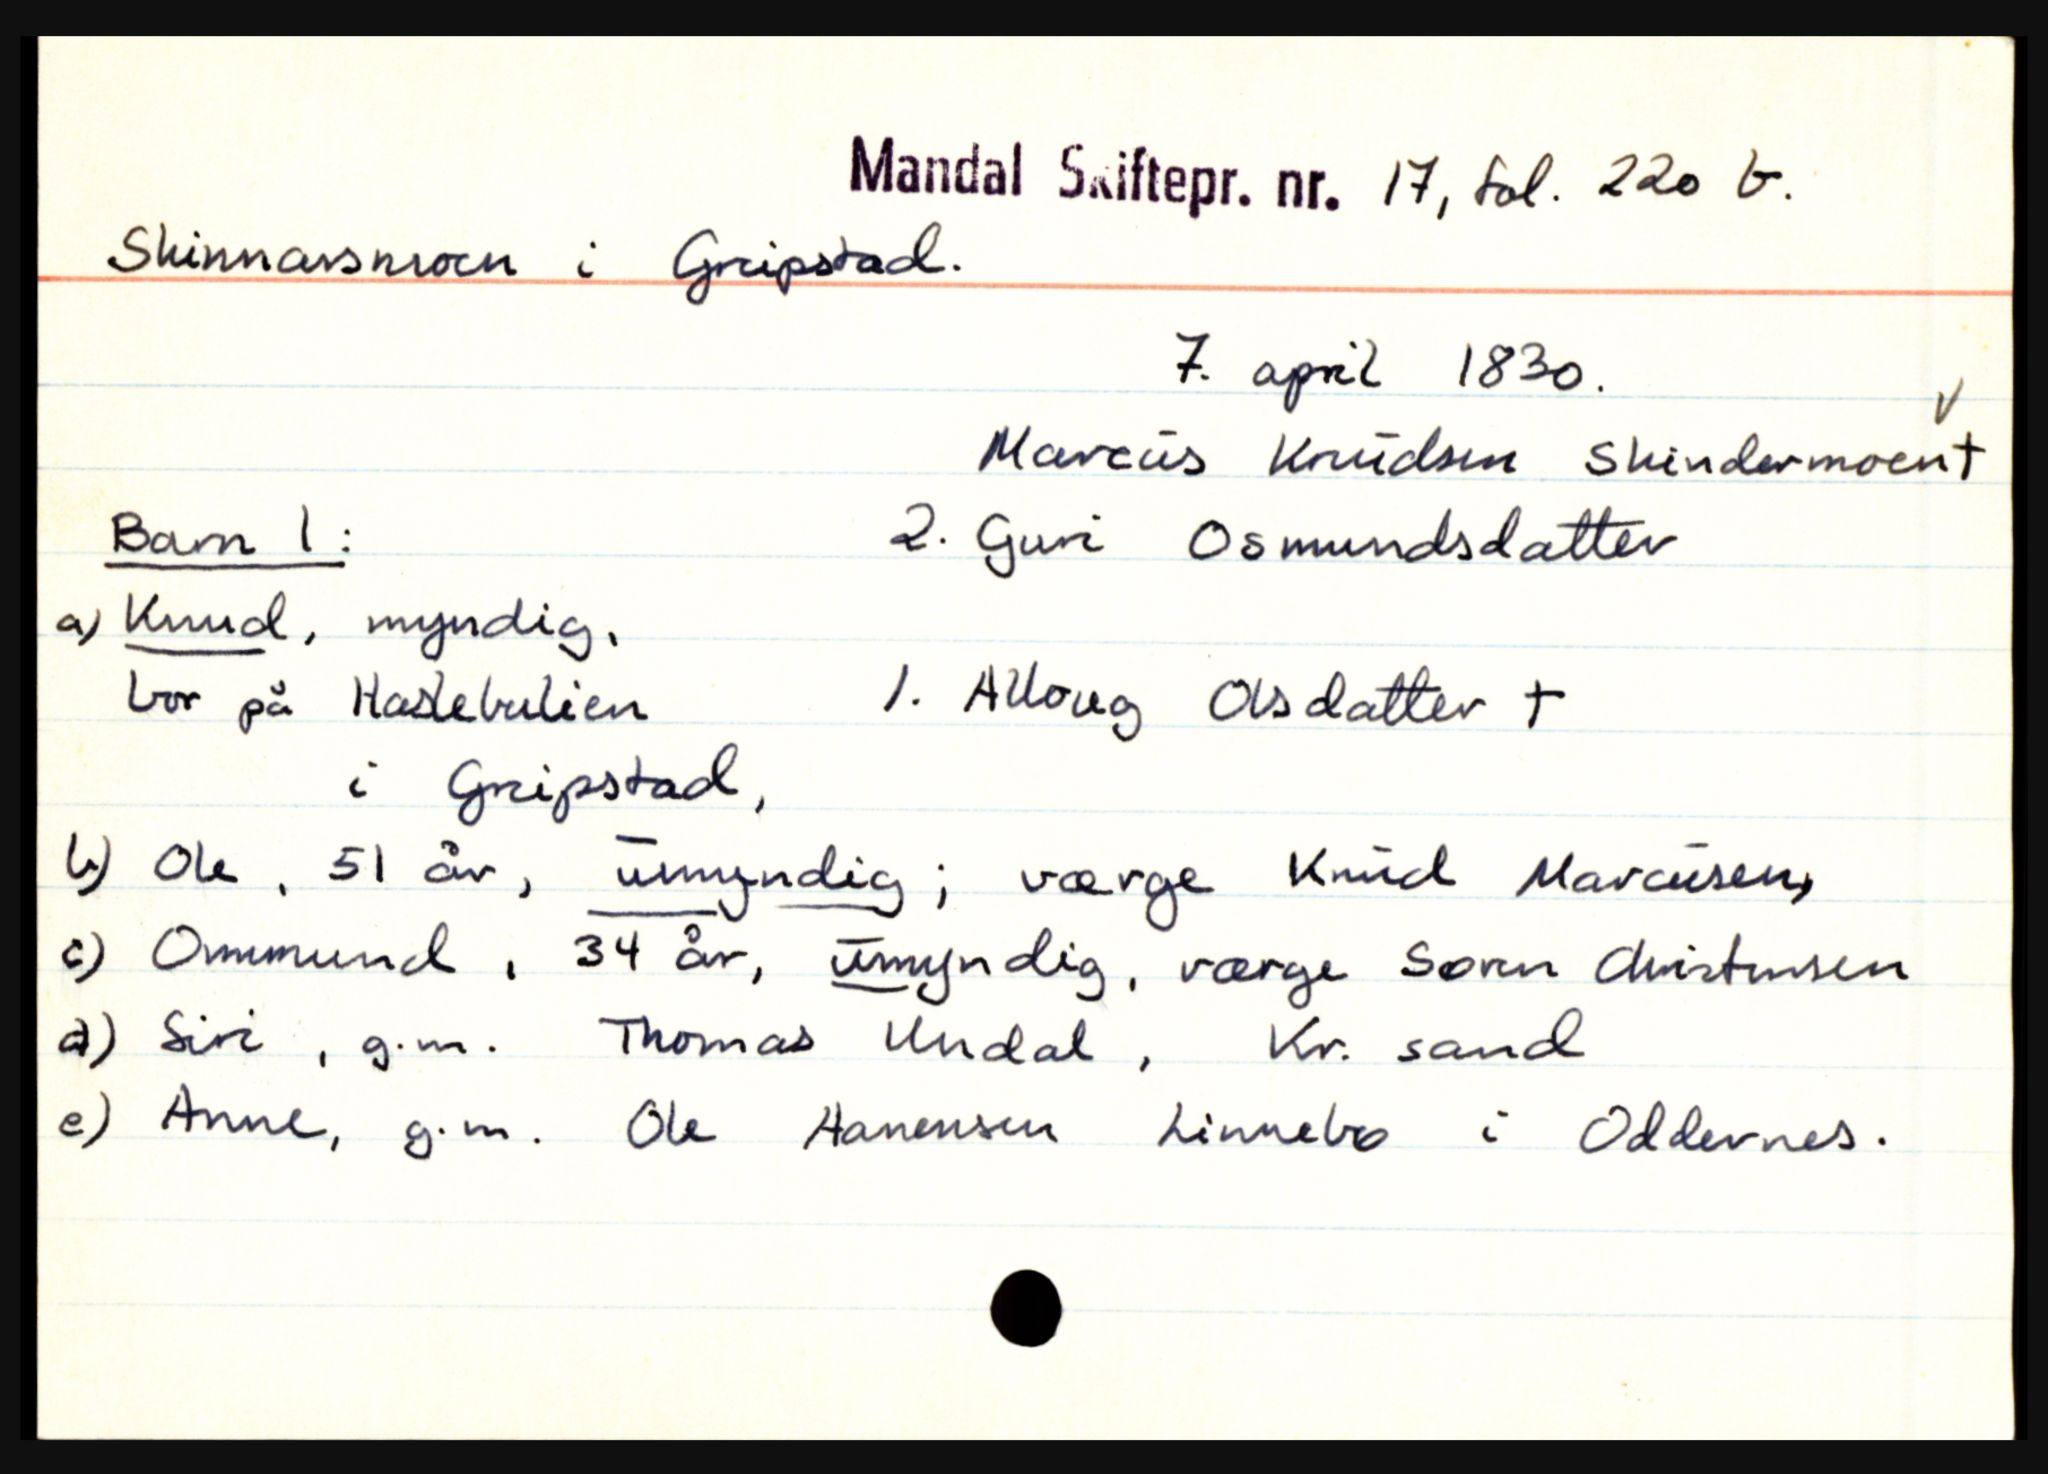 Mandal Skiftepr. nr. 17, fol. 220 b.
Skinnarsmoen i Greipstad.
7. april 1830.
Marcus Knudsen Skindermoen †
Barn 1: 2. Guri Osmundsdatter
a) Knud, myndig,
bor på Haslebulien 1. Alloug Olsdatter †
i Greipstad,
b) Ole, 51 år, umyndig; værge Knud Marcusen,
c) Ommund, 34 år, umyndig, værge Søren Christensen
d) Siri, g.m. Thomas Undal, Kr. sand
e) Anne, g.m. Ole Hanensen Linnebo i Oddernes.